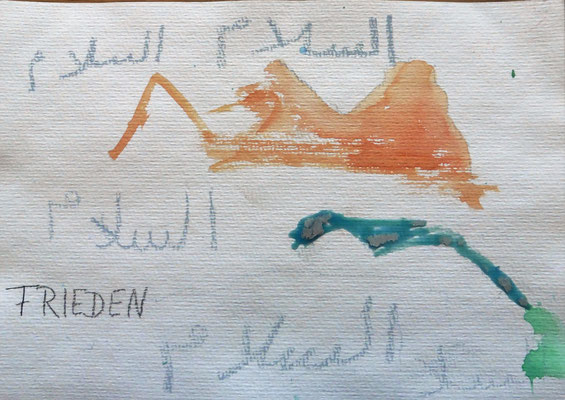 السلام السلام
السلام
FRIEDEN
السلام